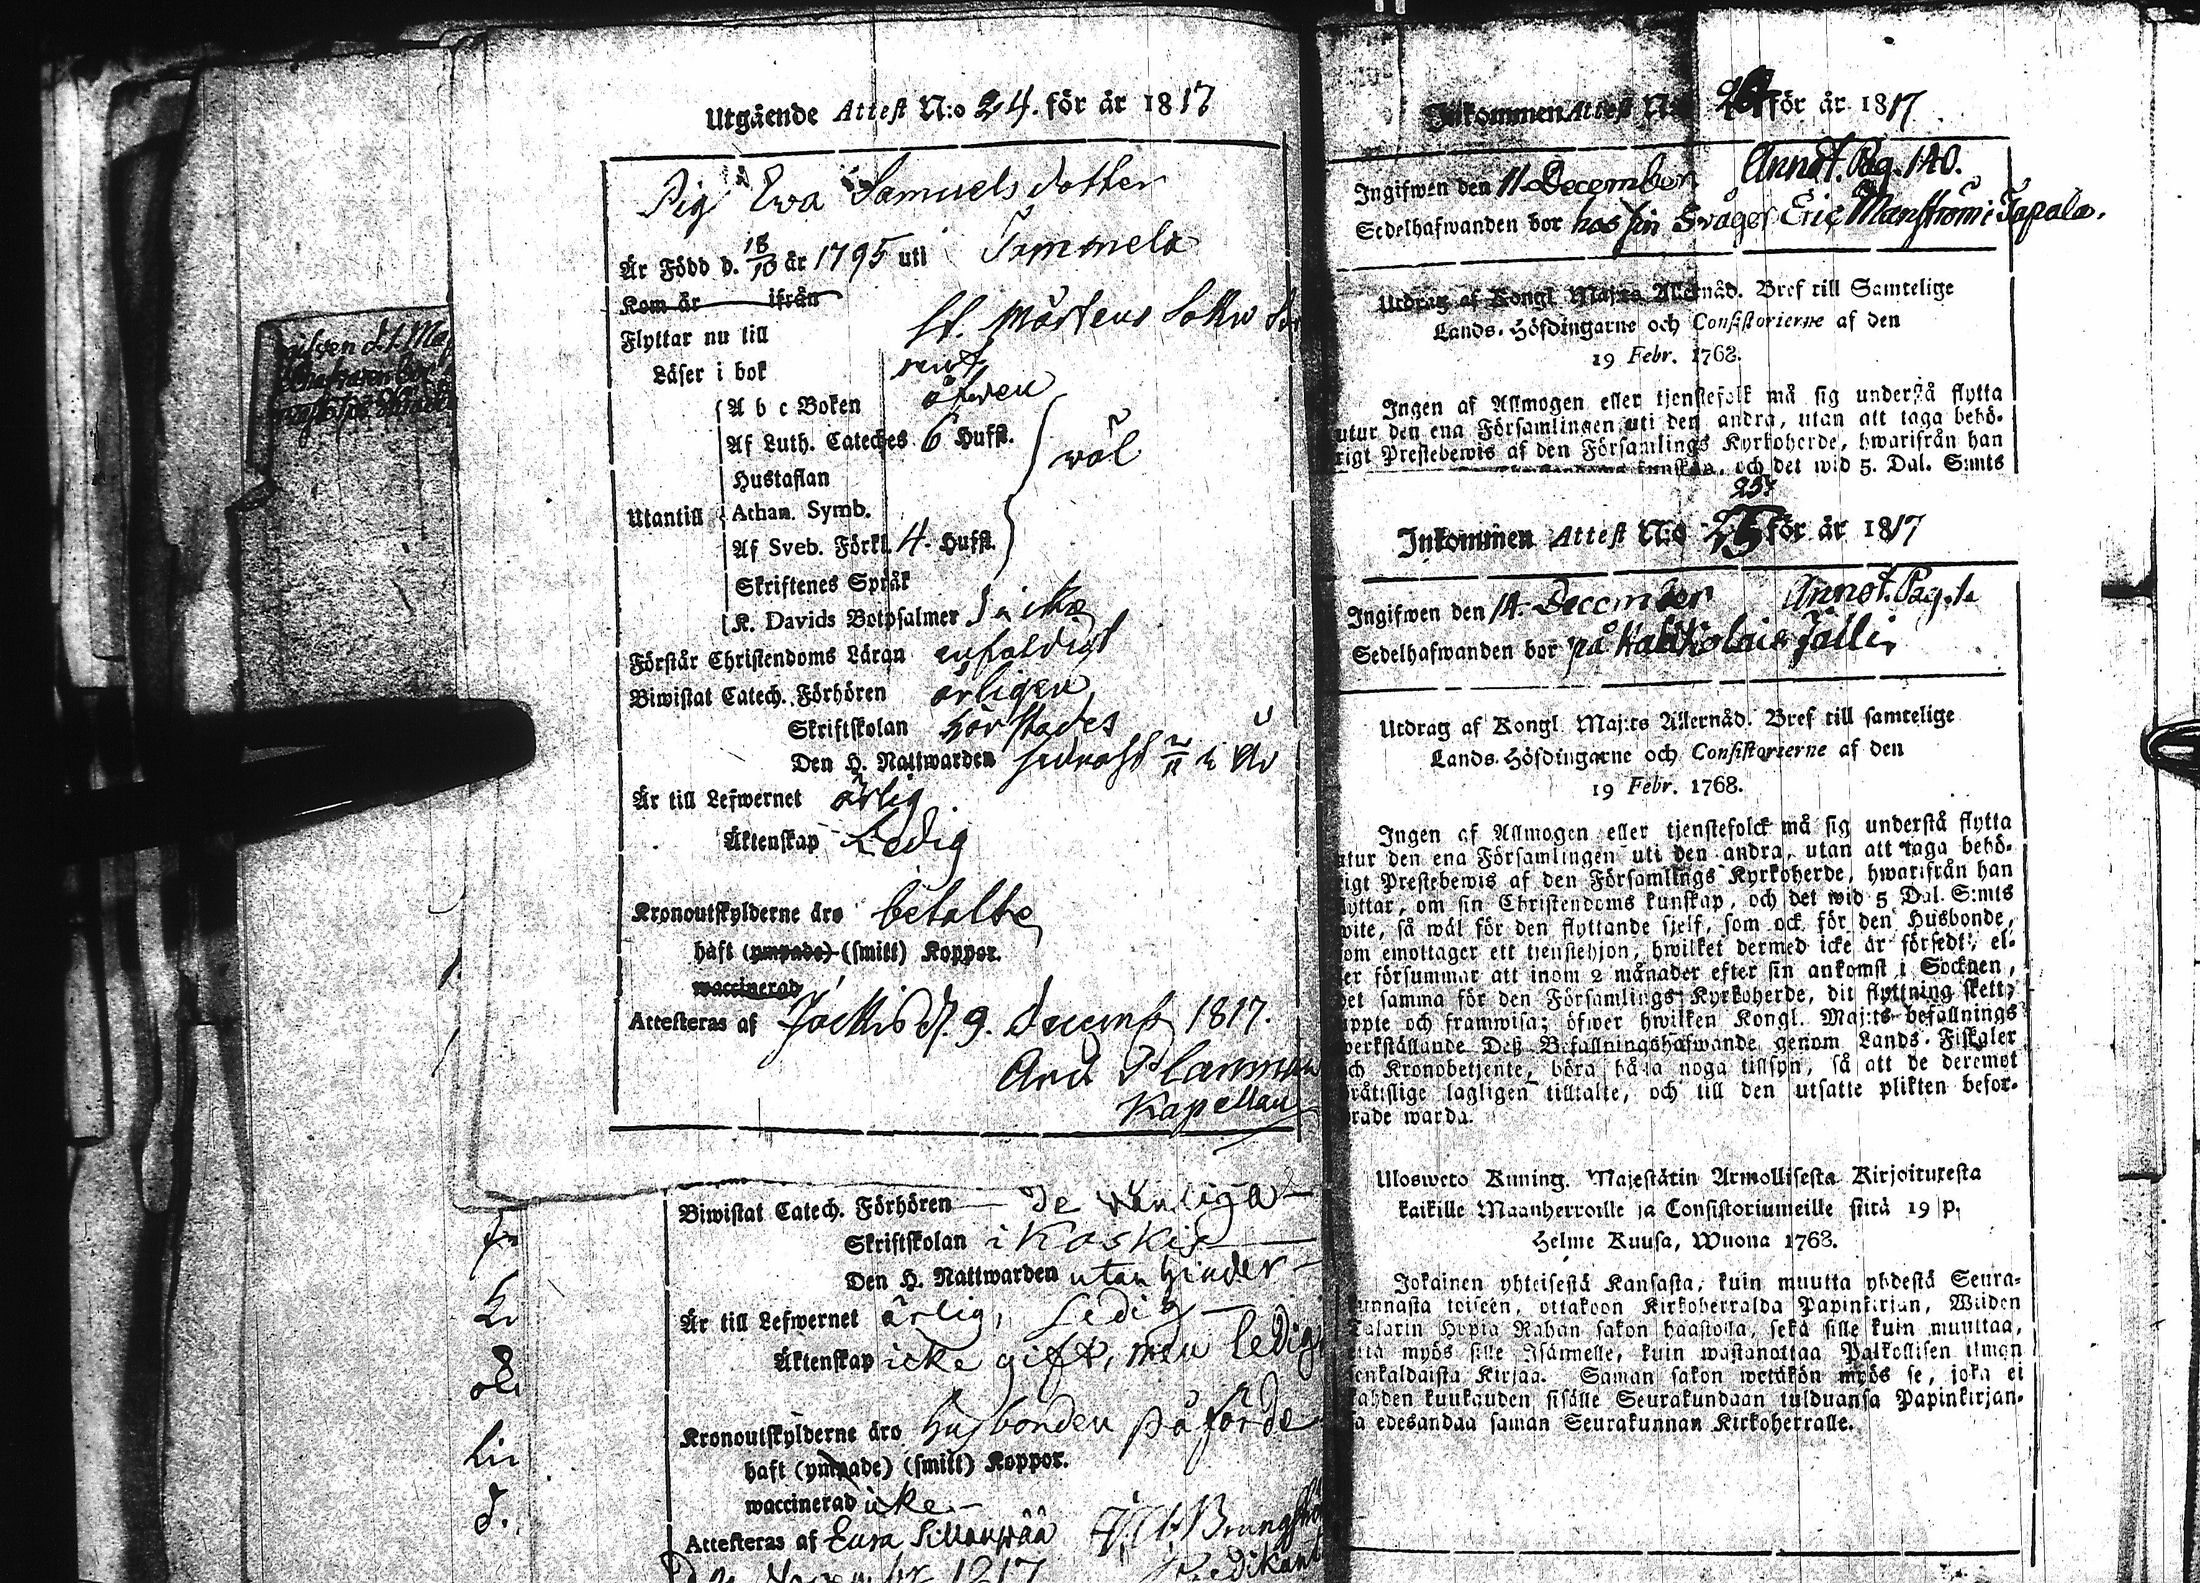 Utgående Attest N:o 24. för år 1817
Pig Ewa Samuels dotter
Är Född d. 18/10 år 1795 uti Tammela
Kom år ifrån
Flyttar nu till St. Mårtens Sokn
Läser i bok rent
A b c Boken äfwen
Af Luth. Cateches 6 Hufst.
Hustaflan wäl
Utantill Athan. Symb.
Af Sveb. Förkl. 4. Hufst.
Skriftenes Språk
K. Davids Botpsalmer icke
Förstår Christendoms Läran enfaldigt
Biwistat Catech. Förhören årligen
Skriftskolan härstädes
Den H. Nattwarden sednast
Är till Lefwernet ärlig.
Äktenskap Ledig
Kronoutskylderne äro betalte
haft (ympade) (smitt) Koppor.
waccinerad
Attesteras af Jockis d. 9. Decemb 1817.
And Planman
Kapellan
Biwistat Catech. Förhören de wanliga
Skriftskolan i Koskis
Den H. Nattwarden utan hinder
Är till Lefwernet ärlig, Ledig
Äktenskap icke gift, men ledig
Kronoutskylderne äro Husbonden påförde
haft (ympade) (smitt) Koppor.
waccinerad icke
Attesteras af Eura
1817
Inkommen Attest N:o 24 för år 1817
Ingifwen den 11 December Annot. Pag. 140.
Sedelhafwanden bor hos sin Swåger Eric Manström i Tapala.
Utdrag af Kongl Maj:ts Allernåd. Bref till Samtelige
Lands-Höfdingarne och Consistorierne af den
19 Febr. 1768.
Ingen af Allmogen eller tjenstefolk må sig understå flytta
utur den ena Församlingen uti den andra, utan att taga behö-
rigt Prestebewis af den Församlings Kyrkoherde, hwarifrån han
kunskap, och det wid 5. Dal. S:mts
25.
Inkommen Attest N:o 25 för år 1817
Ingifwen den 14. December Annot. Pag.
Sedelhafwanden bor på
Utdrag af Kongl Maj:ts Allernåd. Bref till samtelige
Lands-Höfdingarne och Consistorierne af den
19 Febr. 1768.
Ingen af Allmogen eller tjenstefolck må sig understå flytta
utur den ena Församlingen uti den andra, utan att taga behö-
rigt Prestebewis af den Församlings Kyrkoherde, hwarifrån han
flyttar, om sin Christendoms kunskap, och det wid 5 Dal. S:mts
wite, så wäl för den flyttande sjelf, som ock för den Husbonde,
som emottager ett tjenstehjon, hwilket dermed icke är försedt, el-
ler försummar att inom 2 månader efter sin ankomst i Socknen,
det samma för den Församlings Kyrkoherde, dit flyttning skett,
uppte och framwisa; öfwer hwilken Kongl. Maj:ts befallnings
werkställande Deß Befallningshafwande genom Lands-Fiskaler
och Kronobetjente, böra hålla noga tillsyn, så att de deremot
bråttslige lagligen tilltalte, och till den utsatte plikten befor-
drade warda.
Ulosweto Kuning. Majestätin Armollisesta Kirjoituxesta
kaikille Maanherroille ja Consistoriumeille siitä 19 p.
Helme Kuusa, Wuona 1768.
Jokainen yhteisestä Kansasta, kuin muutta yhdestä Seura-
kunnasta toiseen, ottakoon Kirkoherralda Papinkirjan, Wiiden
Talarin Hopia Rahan sakon haastolla, sekä sille kuin muuttaa,
että myös sille Isännelle, kuin wastanottaa Palkollisen ilman
senkaldaista Kirjaa. Saman sakon wetäkön myös se, joka ei
kahden kuukauden sisälle Seurakundaan tulduansa Papinkirjan-
sa edesandaa saman Seurakunnan Kirkoherralle.